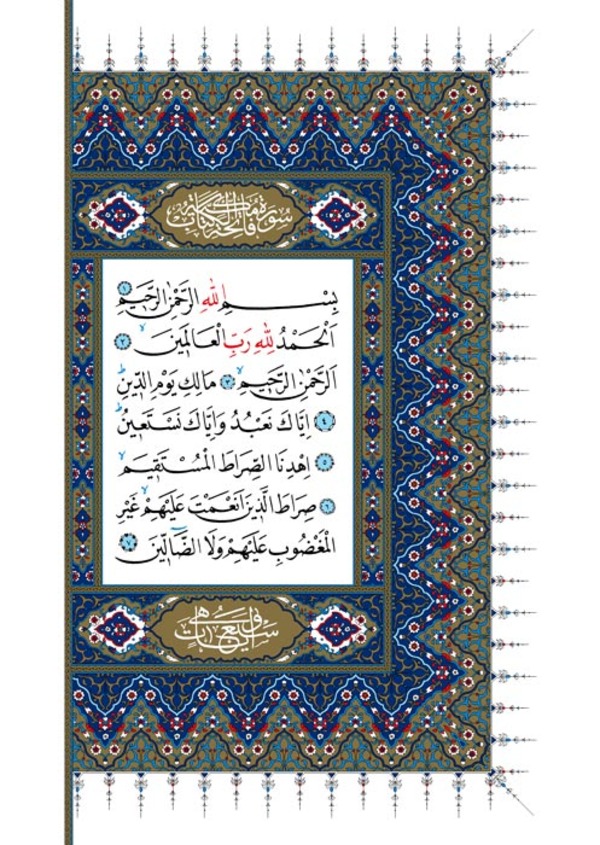 بِسْــــــمِ اللهِ الرَّحْمٰنِ الرَّحٖيمِ ﴿١﴾
اَلْحَمْدُ لِلّٰهِ رَبِّ الْعَالَمٖينَۙ ﴿٢﴾
اَلرَّحْمٰنِ الرَّحٖيمِۙ ﴿٣﴾ مَالِكِ يَوْمِ الدّٖينِؕ
﴿٤﴾ اِيَّاكَ نَعْبُدُ وَاِيَّاكَ نَسْتَعٖينُؕ
اِهْدِنَا الصِّرَاطَ الْمُسْتَقٖيمَۙ ﴿٥﴾
﴿٦﴾ صِرَاطَ الَّذٖينَ اَنْعَمْتَ عَلَيْهِمْۙ غَيْرِ
الْمَغْضُوبِ عَلَيْهِمْ وَلَا الضَّٓالّٖينَ ﴿٧﴾